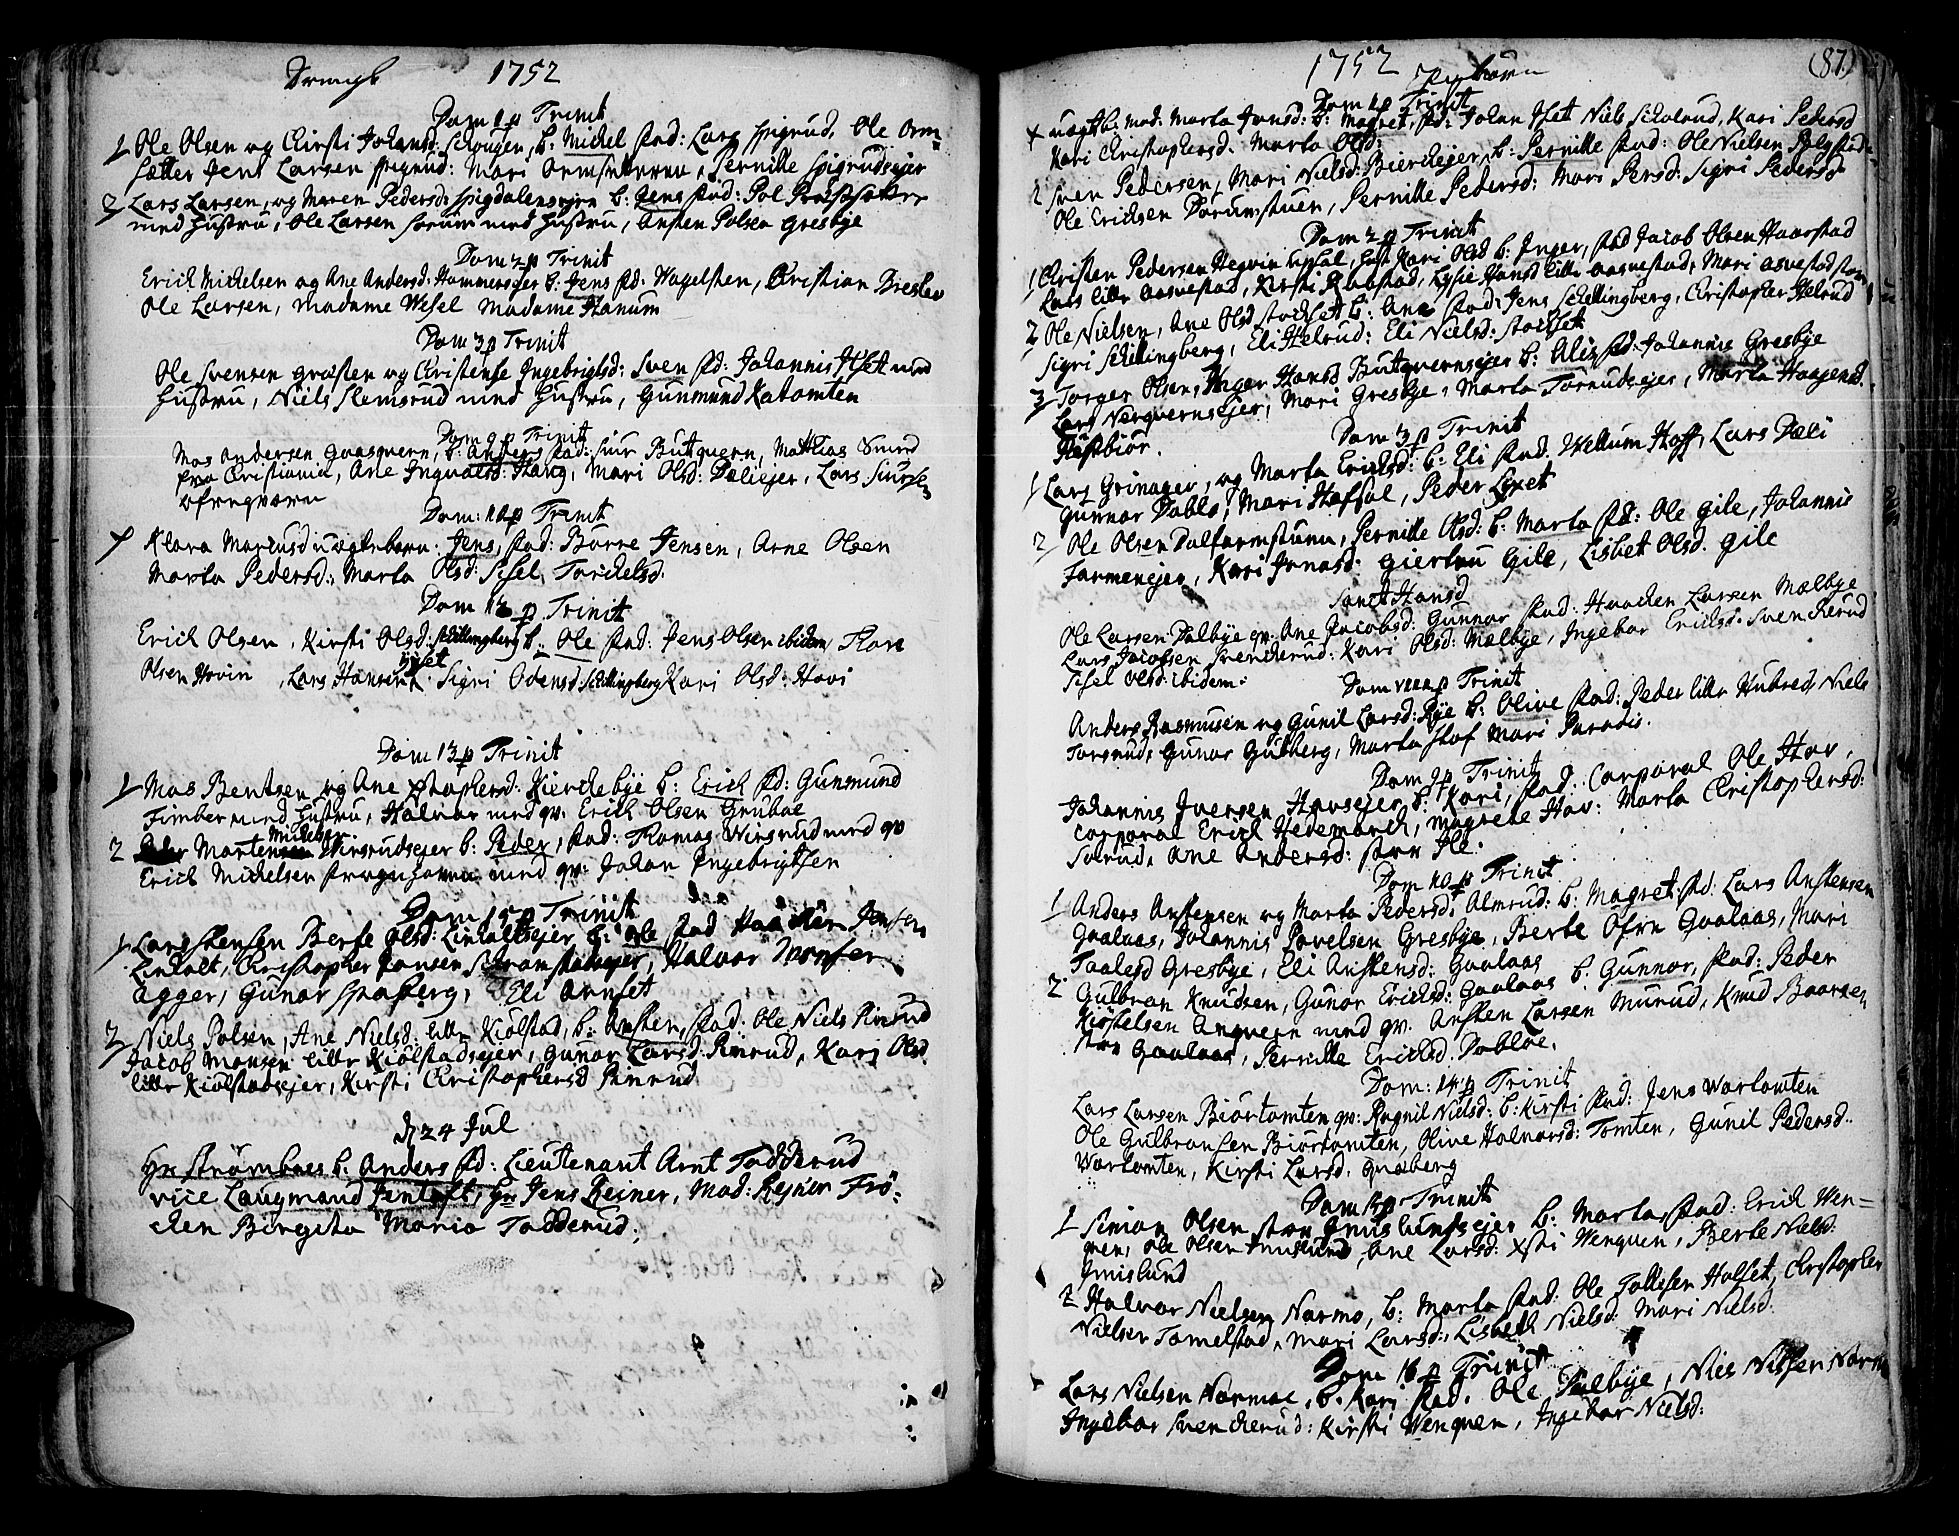 Drenge 1752
Dom 1 p Trinit
1 Ole Olsen og Kirsti Johansd: Schougen, b: Michel fad: Lars Spigrud, Ole Orm-
sætter Jens Larsen Spigrud: Mari Pernille Spigrudsejer
2 Lars Larsen, og Maren Pedersd: Spigdalensejer b: Jens fad: Pol
med hustru, Ole Larsen med hustru, Ansten Polsen Gresbye
Dom 2 p Trinit
Erich Michelsen og Ane Andersd: Hammersejer b: Jens fd: Vogelsten, Christian Breslau
Ole Larsen, Madame Wesel Madame Hanum
Dom 3 p Trinit
Ole Svensen og Christense Ingebrigtsd: Sven fd: Johannis med
hustru, Niels Slemsrud med hustru, Gunmund Katomten
Dom 9 p Trinit
Mos Andersen Gaasquern, b: Anders fad: Siur Butquern, Mathias Smed
fra Christiania, Ane Ingvalds: Hang, Mari Olsd: Dæliejer, Lars Siursen

Dom: 10 p Trinit
Klara Markusd uægtebarn: Jens, fad: Børre Jensen, Arne Olsen
Marta Pedersd: Marta Olsd: Sisel Torchelsd.
Dom p Trinit
Erich Olsen, Kirsti Olsd: Schillingberg b: Ole fad: Jens Olsen ibidem, Thor
Olsen Hovin, Lars Hansen Sigri Odensd: Schillingberg Kari Olsd: Hovi
Dom 13 p Trinit
1 Mos Bentsen og Ane Xstophersd: Kierchebye b: Erich fd: Gunmund
Fimber med hustru, Halvor med qv: Erich Olsen Grubol
2 Morten Michelsen Wirsrudsejer b: Peder, fad: Thomas Wirsrud med qv
Erich Michelsen med qv: Johan Ingebrigtsen
Dom 15 p Trinit
1 Lars Berte Olsd: Linholtsejer b: Ole fad Haachen Jensen
Linholt, Christopher Jonsen Halvor
Agger, Gunor Spaberg, Eli
2 Niels Polsen, Ane Nielsd: lille Kiølstad, b: Ansten, fad: Ole Niels Rinrud
Jacob Monsen lille Kiølstadsejer, Gunor Larsd: Rinrud, Kari Olsd
lille Kiølstadsejer, Kirsti Christophersd Rinrud
d 24 Jul
Hr Strømboes b: Anders fd: Lieutenant Arnt Tødderud
vice Laugmand Jentoft, Hr Jens Reiner, Mad: Rejner Frø-
chen Birgita Maria Tødderud:
1752 (87)
Dom 1 p Trinit
uægte b: mod: Marta Jonsd: b: Magret, fd: Johan Niels Scholrud, Kari Pedersd
Kari Christophersd. Marta Olsd:
2 Sven Pedersen, Mari Nielsd: Bierchejer, b: Pernille fad: Ole Nielsen
Ole Erichsen Dørumstuen, Pernille Pedersd: Mari Persd: Sigri Pedersd
Dom 2 p Trinit
1 Christen Pedersen Kari Olsd b: Inger, fad Jacob Olsen Haarstad
Lars lille Aasvestad, Kirsti Rabstad, Lysie Hansd lille Aasvestad, Mari
2 Ole Nielsen, Ane Olsd b: Ane fad: Jens Schillingberg, Christopher Helrud
Sigri Schillingberg, Eli Helrud: Eli Nielsd:
3 Torger Olsen, Inger Hansd Butquernsejer b: Alis fd: Johannis Gresbye
Lars Nerquernsejer, Mari Gresbye, Marta Tornudsejer, Marta Haagensd.

Dom 3 p Trinit
1 Lars Grinager, og Marta Erichsd: b: Eli fad: Wellum Hoff, Lars Dæli
Gunnor Dobloe, Mari Hofsøl, Peder Lyset
2 Ole Olsen Dalfarmstuen, Pernille Olsd: b: Marta fd: Ole Gile, Johannis
Farmenejer, Kari Jonasd: Giertru Gile, Lisbet Olsd. Gile
Sanct Hansd
Ole Larsen Dalbye qv: Ane Jacobsd: Gunnor fad: Haachen Larsen Mælbye
Lars Jacobsen Svencherud: Kari Olsd: Mælbye, Ingebor Erichsd: Svencherud
Sisel Olsd: ibidem.
Dom p Trinit
Anders Rasmusen og Gunil Larsd: Rye b: Olive fad: Peder lille Hubred, Niels
Torsrud, Gunor Gulberg, Marta Hof Mari Paradis.
Dom 9 p Trinit
Johannis Iversen Hovsejer b: Kari, fad: Corporal Ole Hov,
Corporal Erich Hedemarch, Magrete Hov: Marta Christophersd:
Solrud, Ane Andersd:
Dom 10 p Trinit
1 Anders Anstensen og Marta Pedersd: Almrud: b: Magret fd: Lars Anstensen
Gaalaas, Johannis Povelsen Gresbye, Berte Øfre Gaalaas, Mari
Taalesd Gresbye, Eli Anstensd: Gaalaas
2 Gulbran Knudsen, Gunor Erichsd: Gaalaas b: Gunnor, fad: Peder
Kiøstelsen Anquern med qv. Ansten Larsen Murud, Knud Baarsen
Gaalaas, Pernille Erichsd. Dobloe.
Dom: 14 p Trinit
Lars Larsen Biørtomten qv: Ragnil Nielsd: b: Kirsti fad: Jens Wortomten
Ole Gulbransen Biørtomten, Olive Halvorsd: Tomten, Gunil Pedersd.
Wortomten, Kirsti Larsd. Graberg
Dom p Trinit
1 Simon Olsen Imislundsejer b: Marta, fad: Erich Wen-
quen, Ole Olsen Imislund, Ane Larsd: Xsti Wenquen, Berte Nielsd:
Imislund
2 Halvor Nielsen Narmo, b: Marta fad: Ole Tollefsen Holset, Christopher
Nielsen Tomelstad, Mari Larsd:, Lisbeth Nielsd: Mari Nielsd.
Dom 16 p Trinit
Lars Nielsen Narmoe, b: Kari fad: Ole Dalbye, Niels Nilsen Narmo
Ingebor Svencherud: Kirsti Wenquen, Ingebor Nielsd: